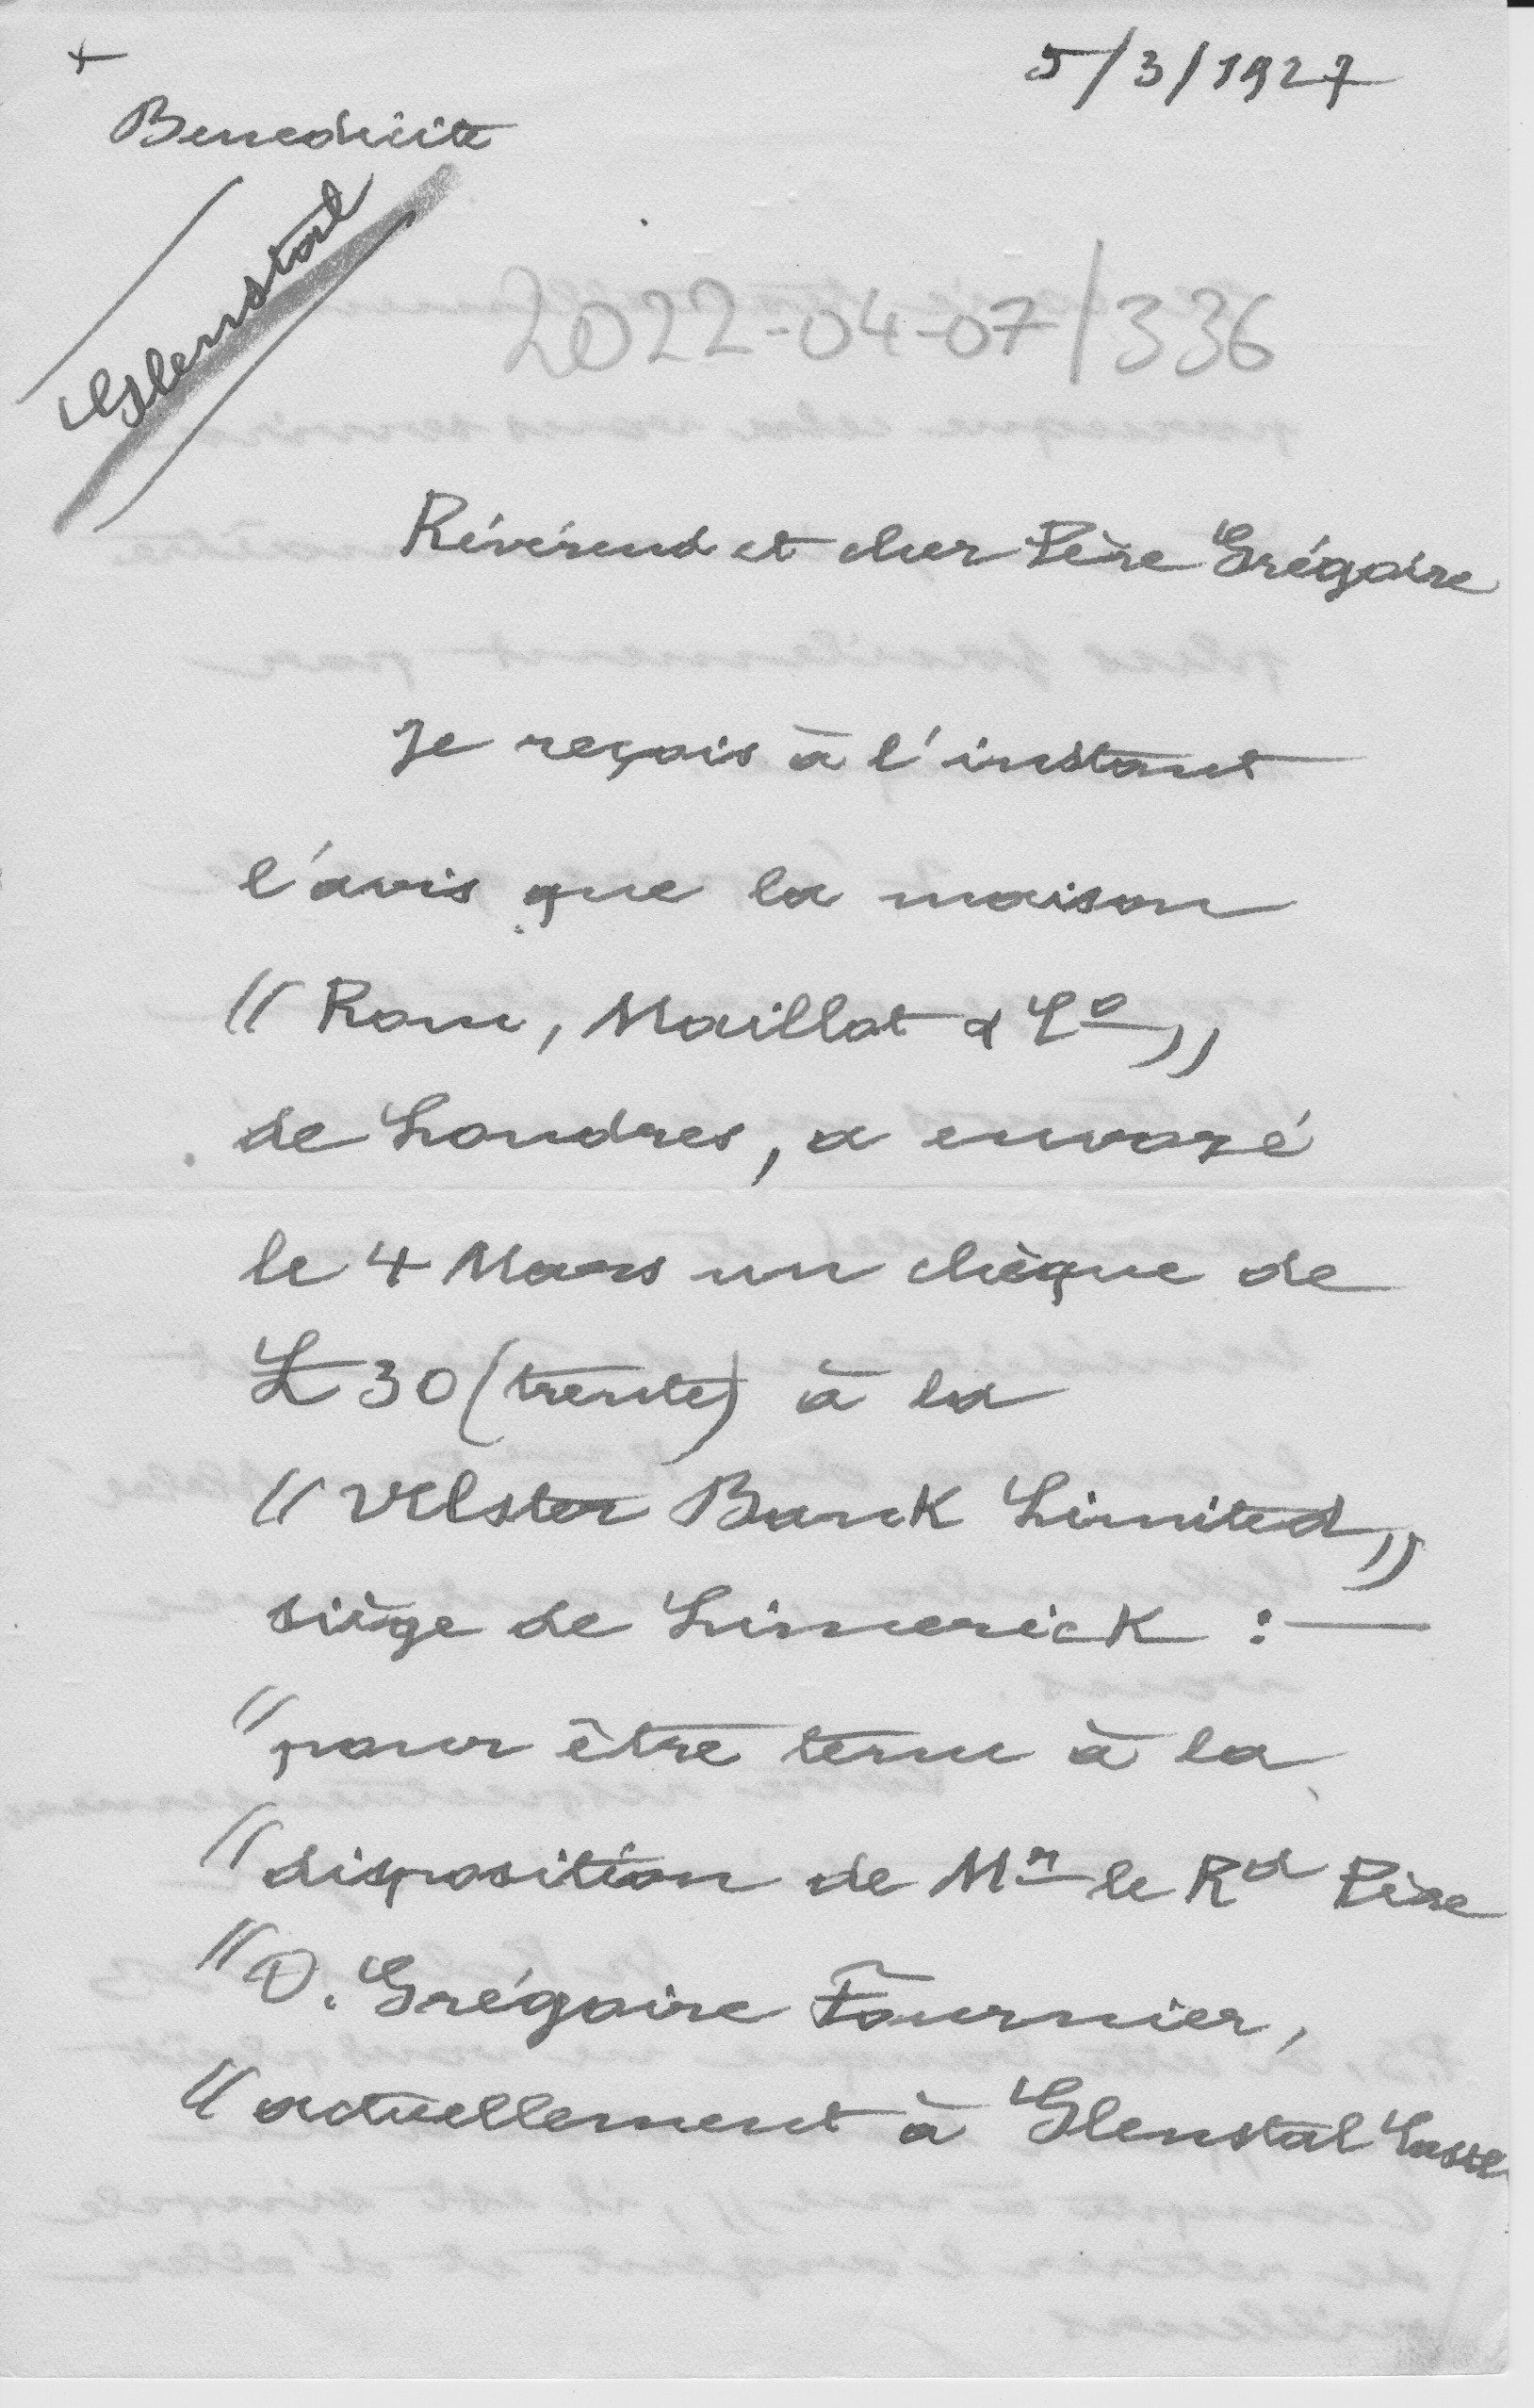 +
5/3/1927
Benedicite
Glenstal
2022-04-07/336
Révérend et cher Père Grégoire
Je reçois à l'instant
l'avis que la maison
"Rom, Maillot & Co"
de Londres, a envoyé
le 4 Mars un chèque de
£ 30 (trente) à la
"Ulster Bank Limited"
siège de Limerick :—
"pour être tenu à la
"disposition de Mr le Rd Père
"D. Grégoire Fournier,
"actuellement à Glenstal Castle